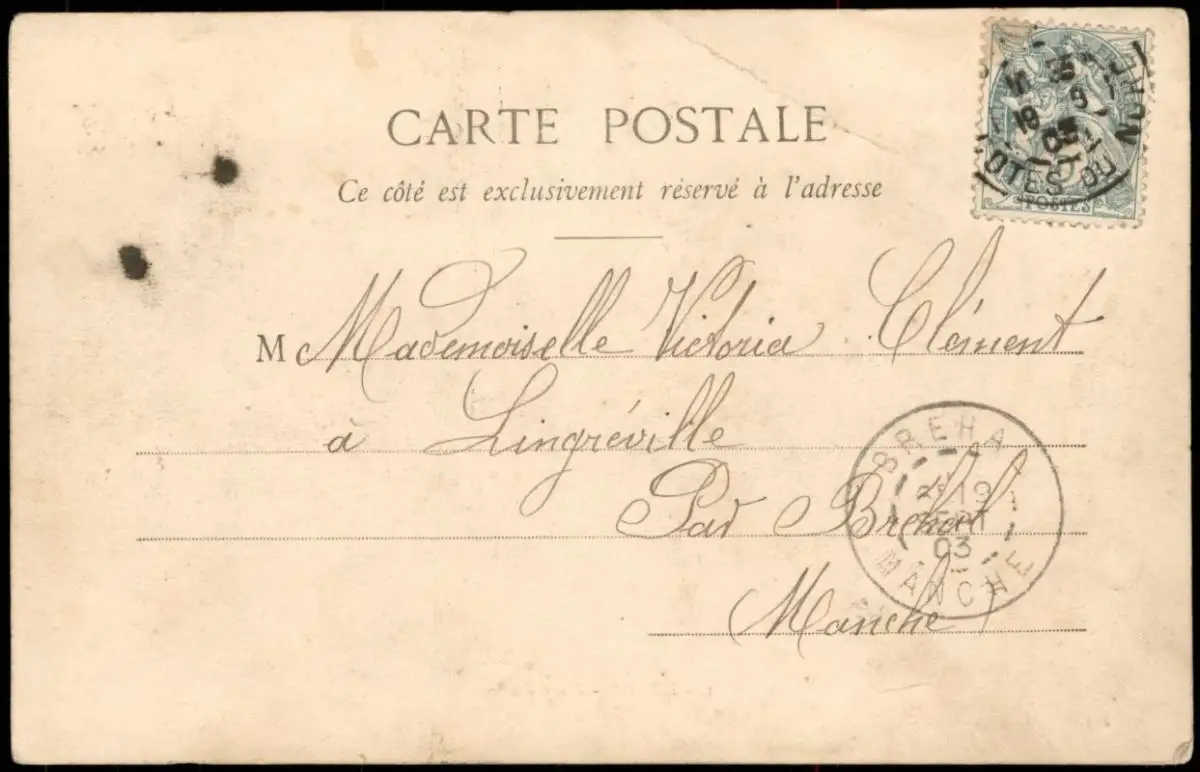 CARTE POSTALE
Ce côté est exclusivement réservé à l'adresse
M Mademoiselle Victoria Clément
à Lingréville
Par Bréhal
(Manche)
POSTES
OTES DU NORD
19
03
BREHA
19
SEPT
03
MANCHE